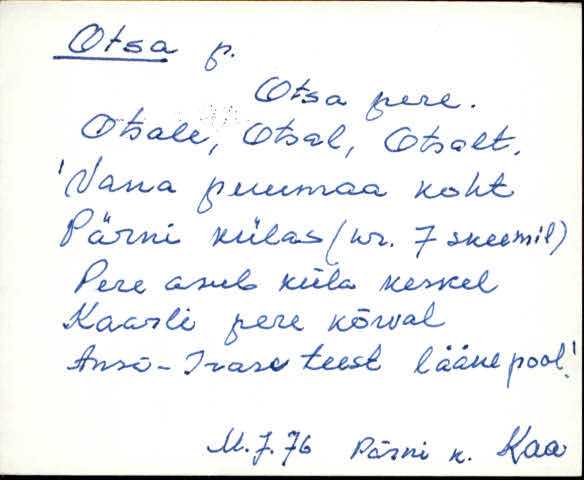 Otsa p.
Otsa pere.
Otsale, Otsal, Otsalt.
'Vana puumaa koht
Pärni külas (nr. 7 skeemil)
Pere asub küla keskel
Kaarli pere kõrval
Ansi - Irase teest lääne pool.'
M.J. 76 Pärni k. Kaa